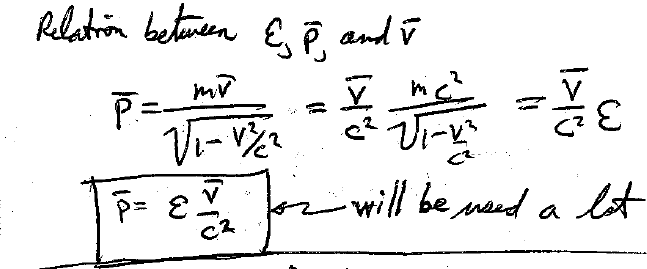 Relation between ℰ, p̄, and v̄
p̄ = mv̄/√(1-v²/c²) = v̄/c² mc²/√(1-v²/c²) = v̄/c² ℰ
p̄ = ℰ v̄/c² ← will be used a lot